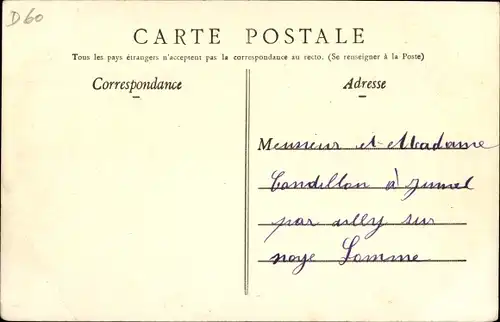 D60
CARTE POSTALE
Tous les pays étrangers n'acceptent pas la correspondance au recto. (Se renseigner à la Poste)
Correspondance
Adresse
Monsieur et Madame
Candillon à Jumel
par ailly sur
noye Somme